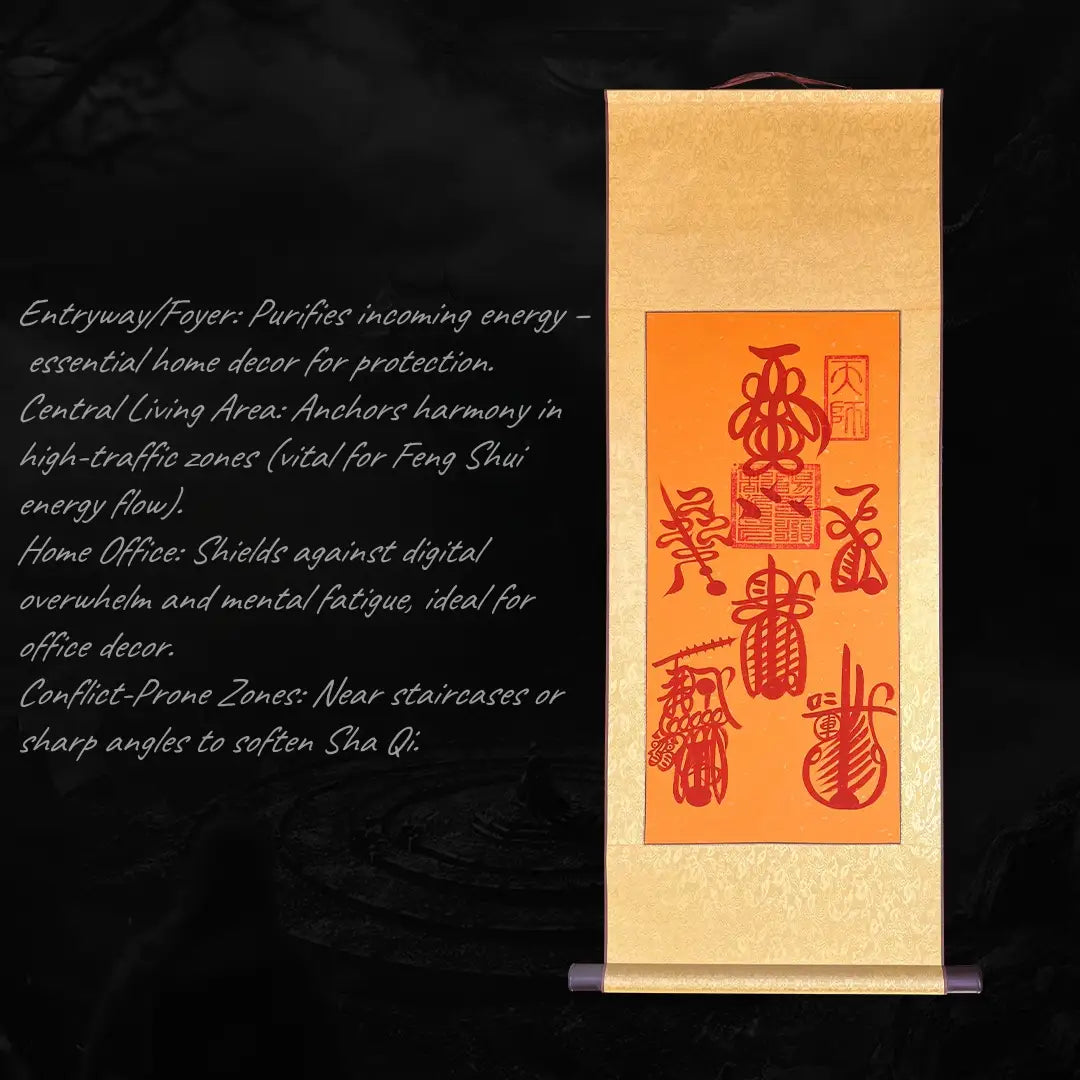 Entryway/Foyer: Purifies incoming energy –
essential home decor for protection.
Central Living Area: Anchors harmony in
high-traffic zones (vital for Feng Shui
energy flow).
Home Office: Shields against digital
overwhelm and mental fatigue, ideal for
office decor.
Conflict-Prone Zones: Near staircases or
sharp angles to soften Sha Qi.
天師